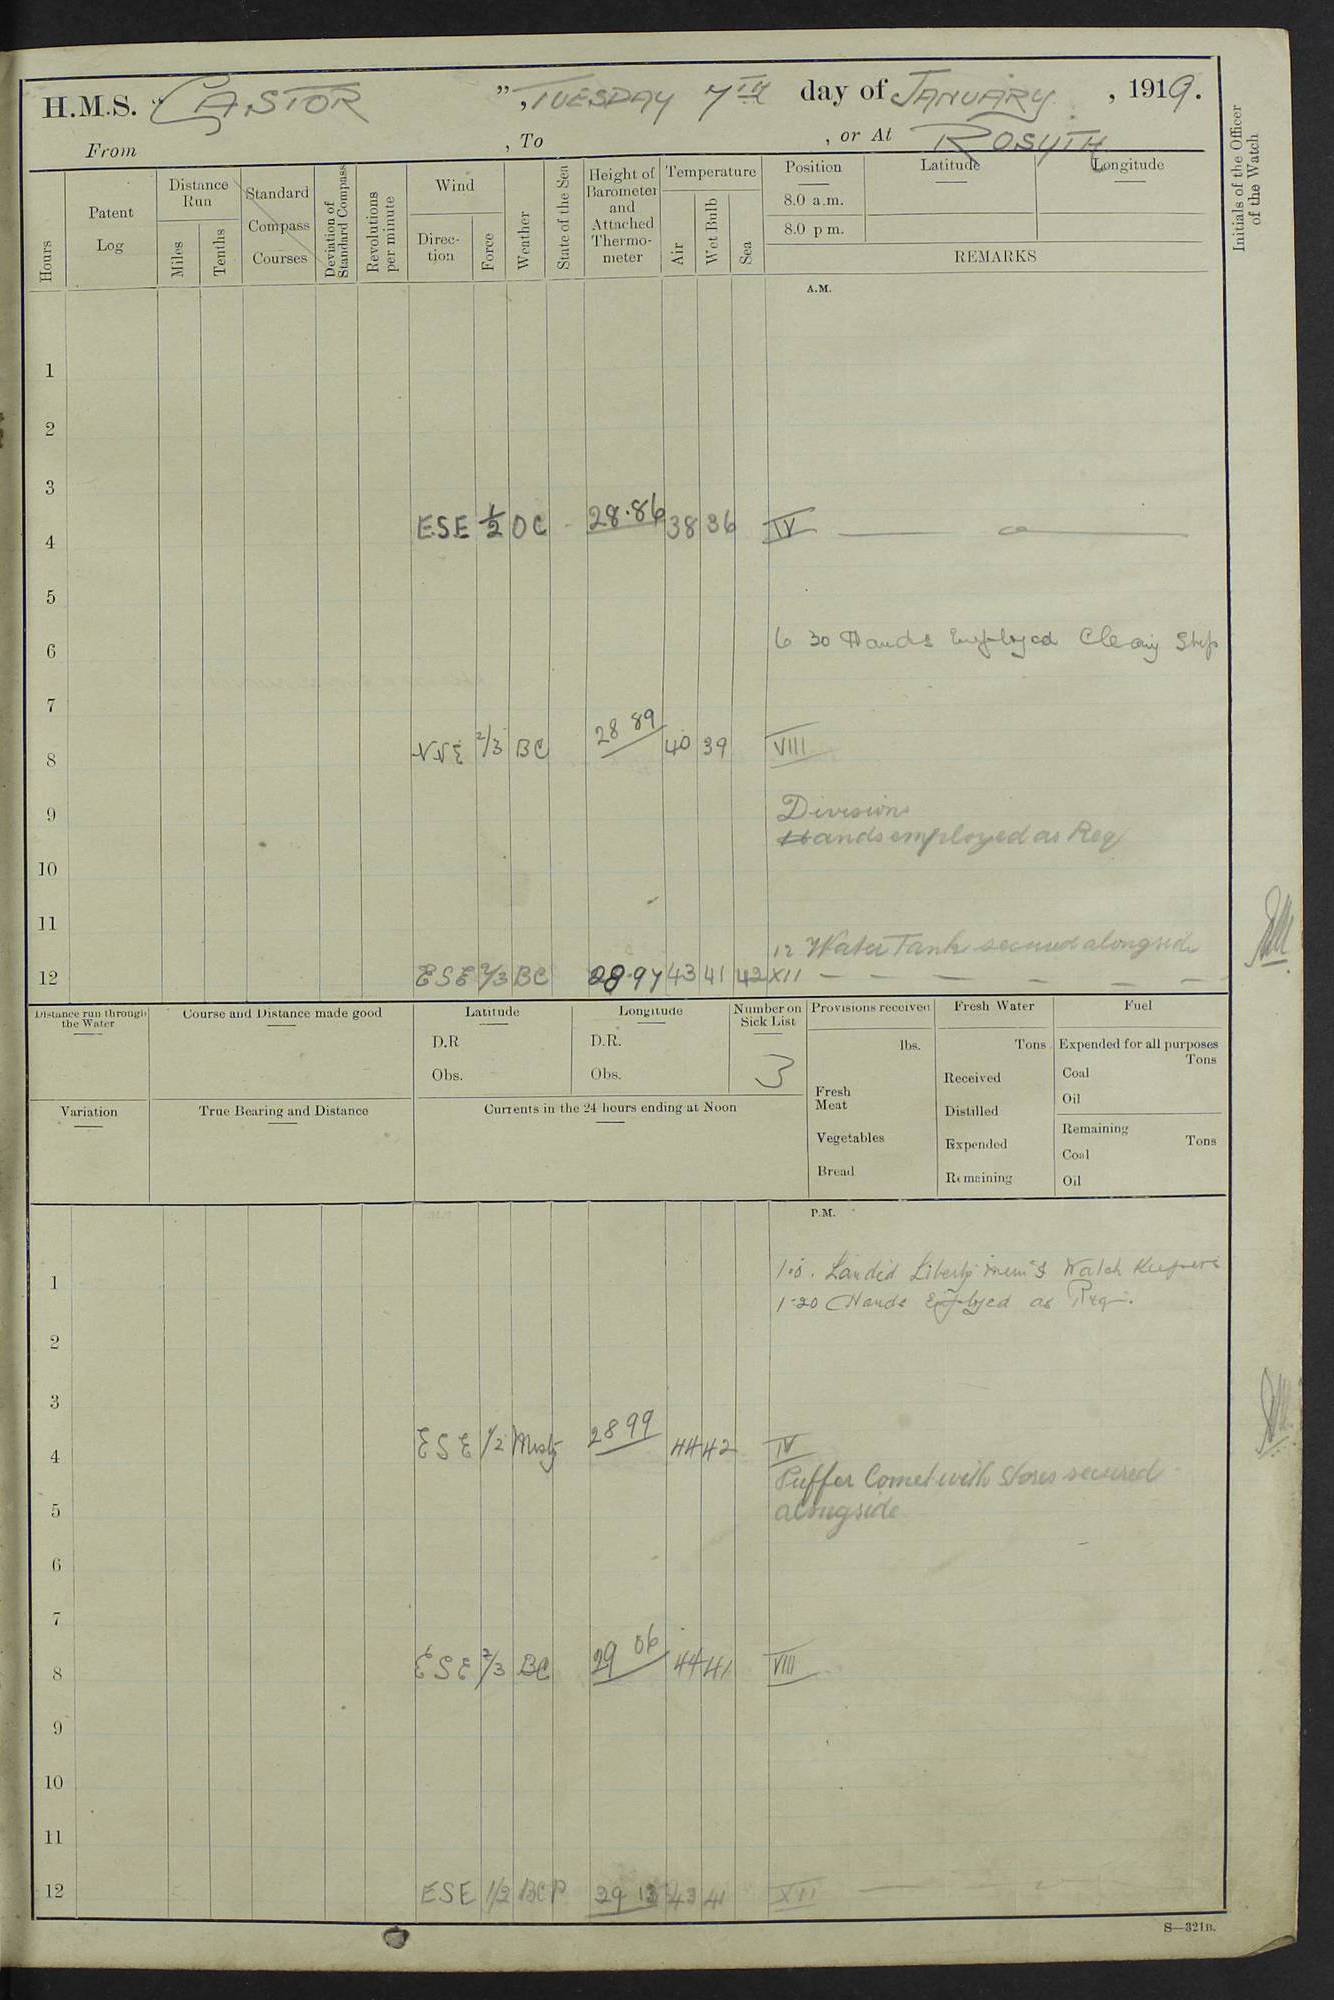 H.M.S. "CASTOR", TUESDAY 7TH day of JANUARY, 1919.
From , To , or At ROSYTH
Initials of the Officer of the Watch
Hours
Patent Log
Distance Run
Miles
Tenths
Standard Compass Courses
Deviation of Standard Compass
Revolutions per minute
Wind
Direc-tion
Force
Weather
State of the Sea
Height of Barometer and Attached Thermo-meter
Temperature
Air
Wet Bulb
Sea
Position
8.0 a.m.
8.0 p m.
Latitude
Longitude
REMARKS
A.M.
1
2
3
4 ESE 1/2 OC - 28.86 38 36 IV
5
6 6 30 Hands Employed Cleaning Ship
7
8 NNE 2/3 BC 28 89 40 39 VIII
9 Divisions
Hands employed as Req
10
11
12 Water Tank secured alongside
12 ESE 2/3 BC 28.97 43 41 42 XII
Distance run through the Water
Course and Distance made good
Latitude
D.R
Obs.
Longitude
D.R.
Obs.
Number on Sick List
3
Provisions received
lbs.
Fresh Meat
Vegetables
Bread
Fresh Water
Tons
Received
Distilled
Expended
Remaining
Fuel
Expended for all purposes
Tons
Coal
Oil
Remaining
Tons
Coal
Oil
Variation
True Bearing and Distance
Currents in the 24 hours ending at Noon
P.M.
1 1.0. Landed Liberty men & Watch Keepers
1-20 Hands Employed as Req.
2
3
4 ESE 1/2 Misty 28 99 44 42 IV
Puffer Comet with Stores secured
5 alongside
6
7
8 ESE 2/3 BC 29 06 44 41 VIII
9
10
11
12 ESE 1/2 BCP 29 13 43 41 XII
S—321B.